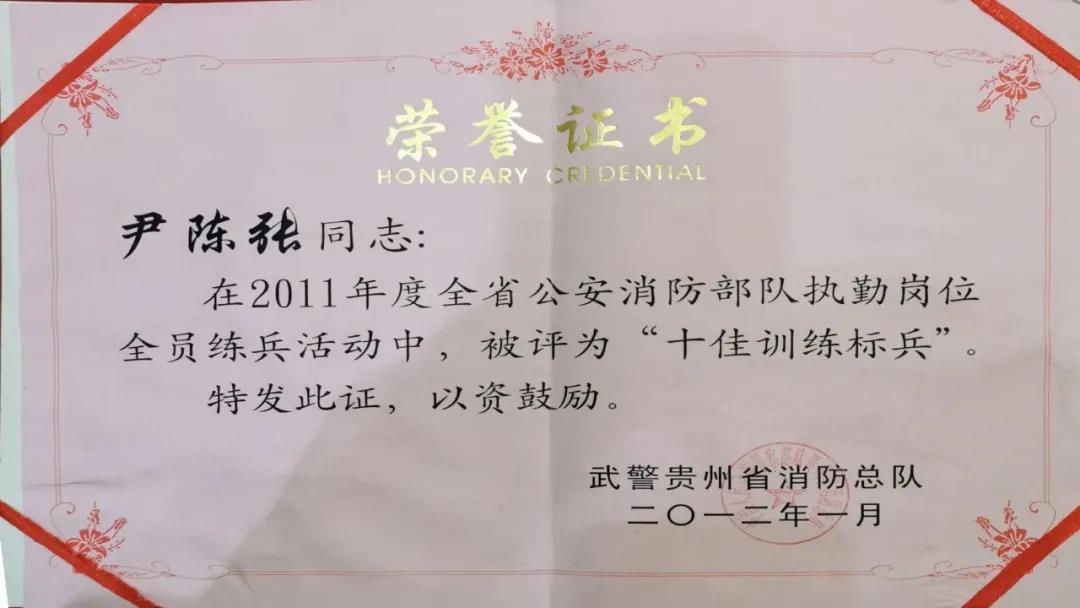 荣誉证书
HONORARY CREDENTIAL
尹陈张同志:
在2011年度全省公安消防部队执勤岗位
全员练兵活动中，被评为“十佳训练标兵”。
特发此证，以资鼓励。
武警贵州省消防总队
二〇一二年一月